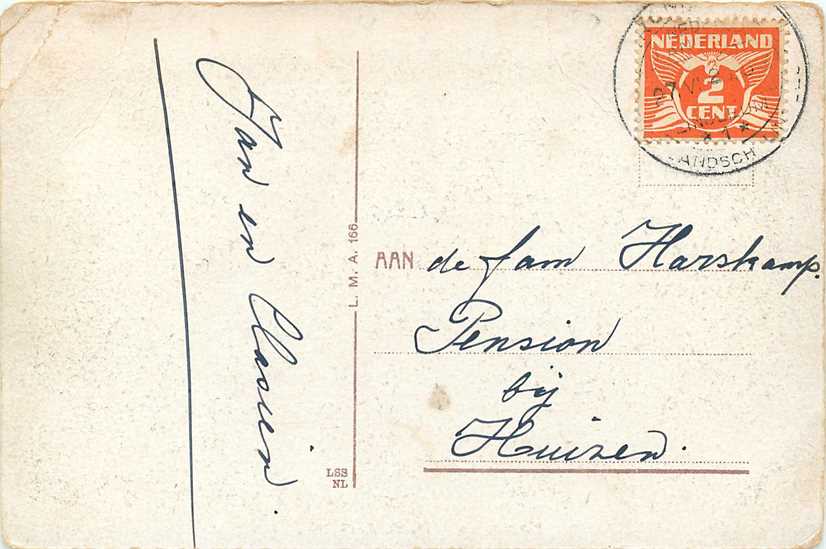 Jan en
L. M. A. 166
LSS
NL
NEDERLAND
2
CENT
LANDSCH
AAN de fam Harskamp.
Pension
bij
Huizen.